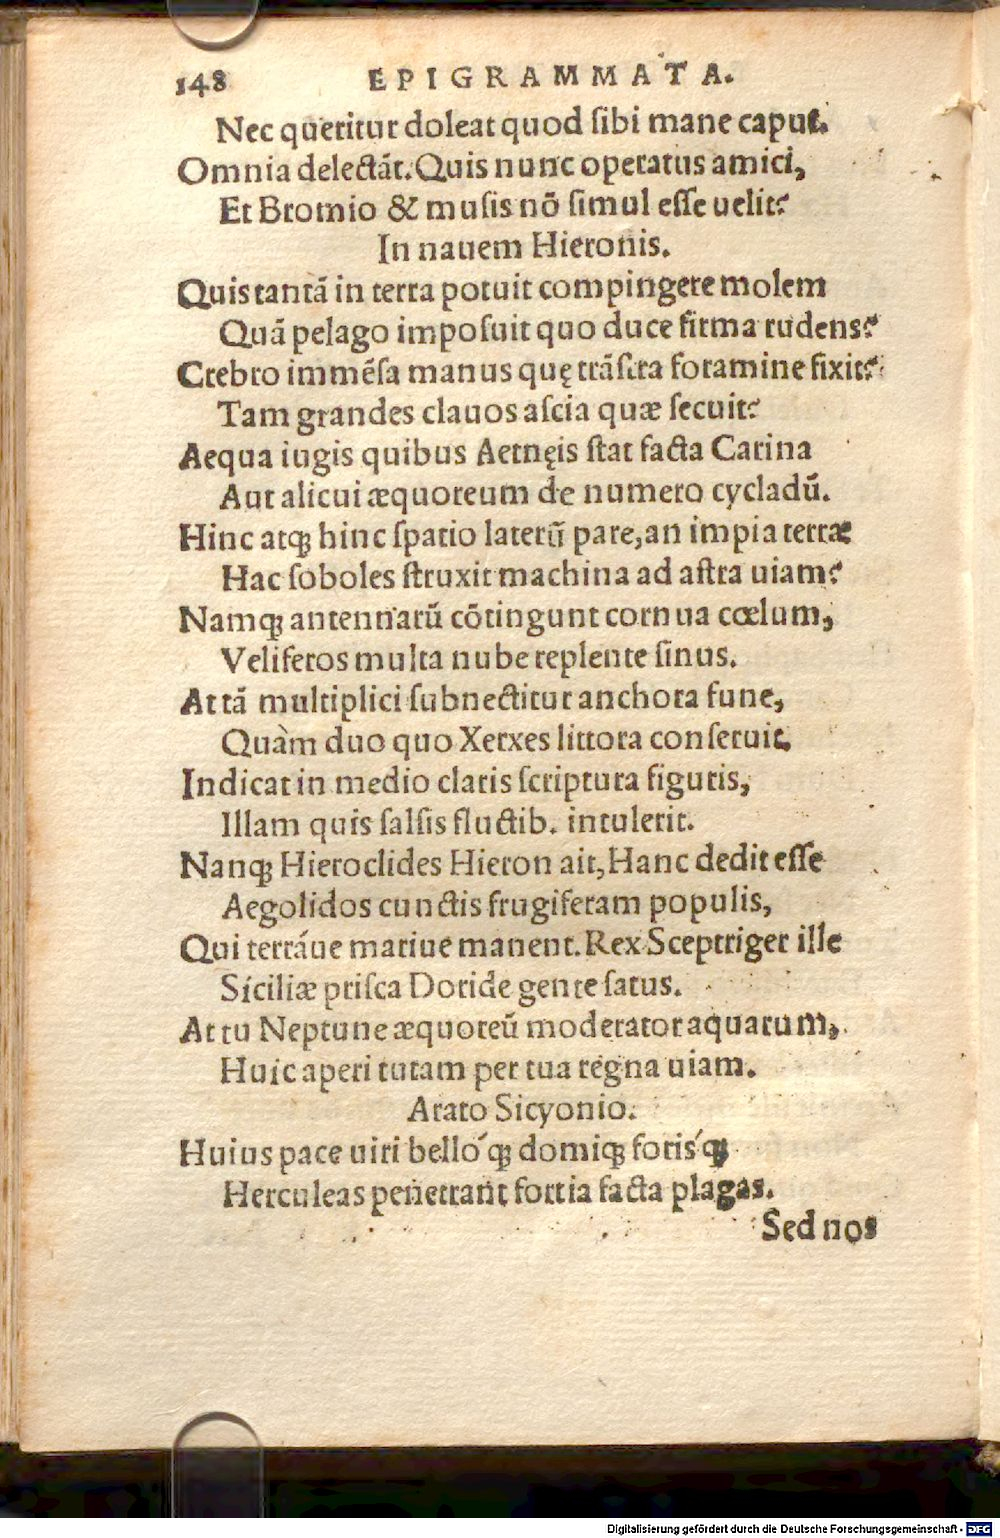 148 EPIGRAMMATA.
Nec queritur doleat quod ſibi mane caput.
Omnia delectāt. Quis nunc operatus amici,
Et Bromio & muſis nō ſimul eſſe uelit?
In nauem Hieronis.
Quis tantā in terra potuit compingere molem
Quā pelago impoſuit quo duce firma rudens?
Crebro immēſa manus quę trāſtra foramine fixit?
Tam grandes clauos aſcia quæ ſecuit?
Aequa iugis quibus Aetnęis ſtat facta Carina
Aut alicui æquoreum de numero cycladū.
Hinc atq; hinc ſpatio laterū pare, an impia terræ
Hac ſoboles ſtruxit machina ad aſtra uiam?
Namq; antennarū cōtingunt cornua cœlum,
Veliferos multa nube replente ſinus.
At tā multiplici ſubnectitur anchora fune,
Quàm duo quo Xerxes littora conſeruit.
Indicat in medio claris ſcriptura figuris,
Illam quis ſalſis fluctib. intulerit.
Nanq; Hieroclides Hieron ait, Hanc dedit eſſe
Aegolidos cunctis frugiferam populis,
Qui terráue mariue manent. Rex Sceptriger ille
Siciliæ priſca Doride gente ſatus.
At tu Neptune æquoreū moderator aquarum,
Huic aperi tutam per tua regna uiam.
Arato Sicyonio.
Huius pace uiri belló q; domiq; foris q́;
Herculeas penetrant fortia facta plagas.
Sed nos
Digitalisierung gefördert durch die Deutsche Forschungsgemeinschaft - DFG